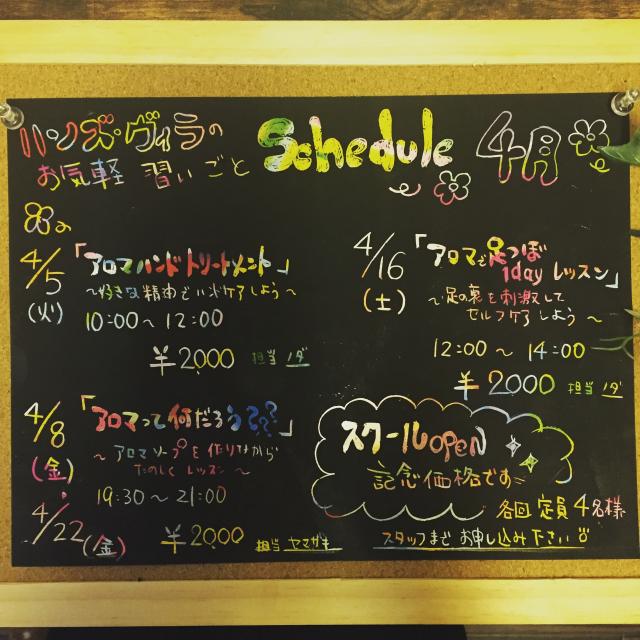 ハンズ・ヴィラの
お気軽 習いごと
Schedule 4月
4/5
(火)
「アロマハンドトリートメント」
〜好きな精油でハンドケアしよう〜
10:00〜12:00
¥2000 担当 ノダ
4/8
(金)
4/22(金)
「アロマって何だろう???」
〜アロマソープを作りながら
たのしくレッスン〜
19:30〜21:00
¥2000 担当 ヤマガキ
4/16
(土)
「アロマで足つぼ
1dayレッスン」
〜足の裏を刺激して
セルフケアしよう〜
12:00〜14:00
¥2000 担当 ノダ
スクールOPEN
記念価格です
各回定員4名様
スタッフまでお申し込み下さい